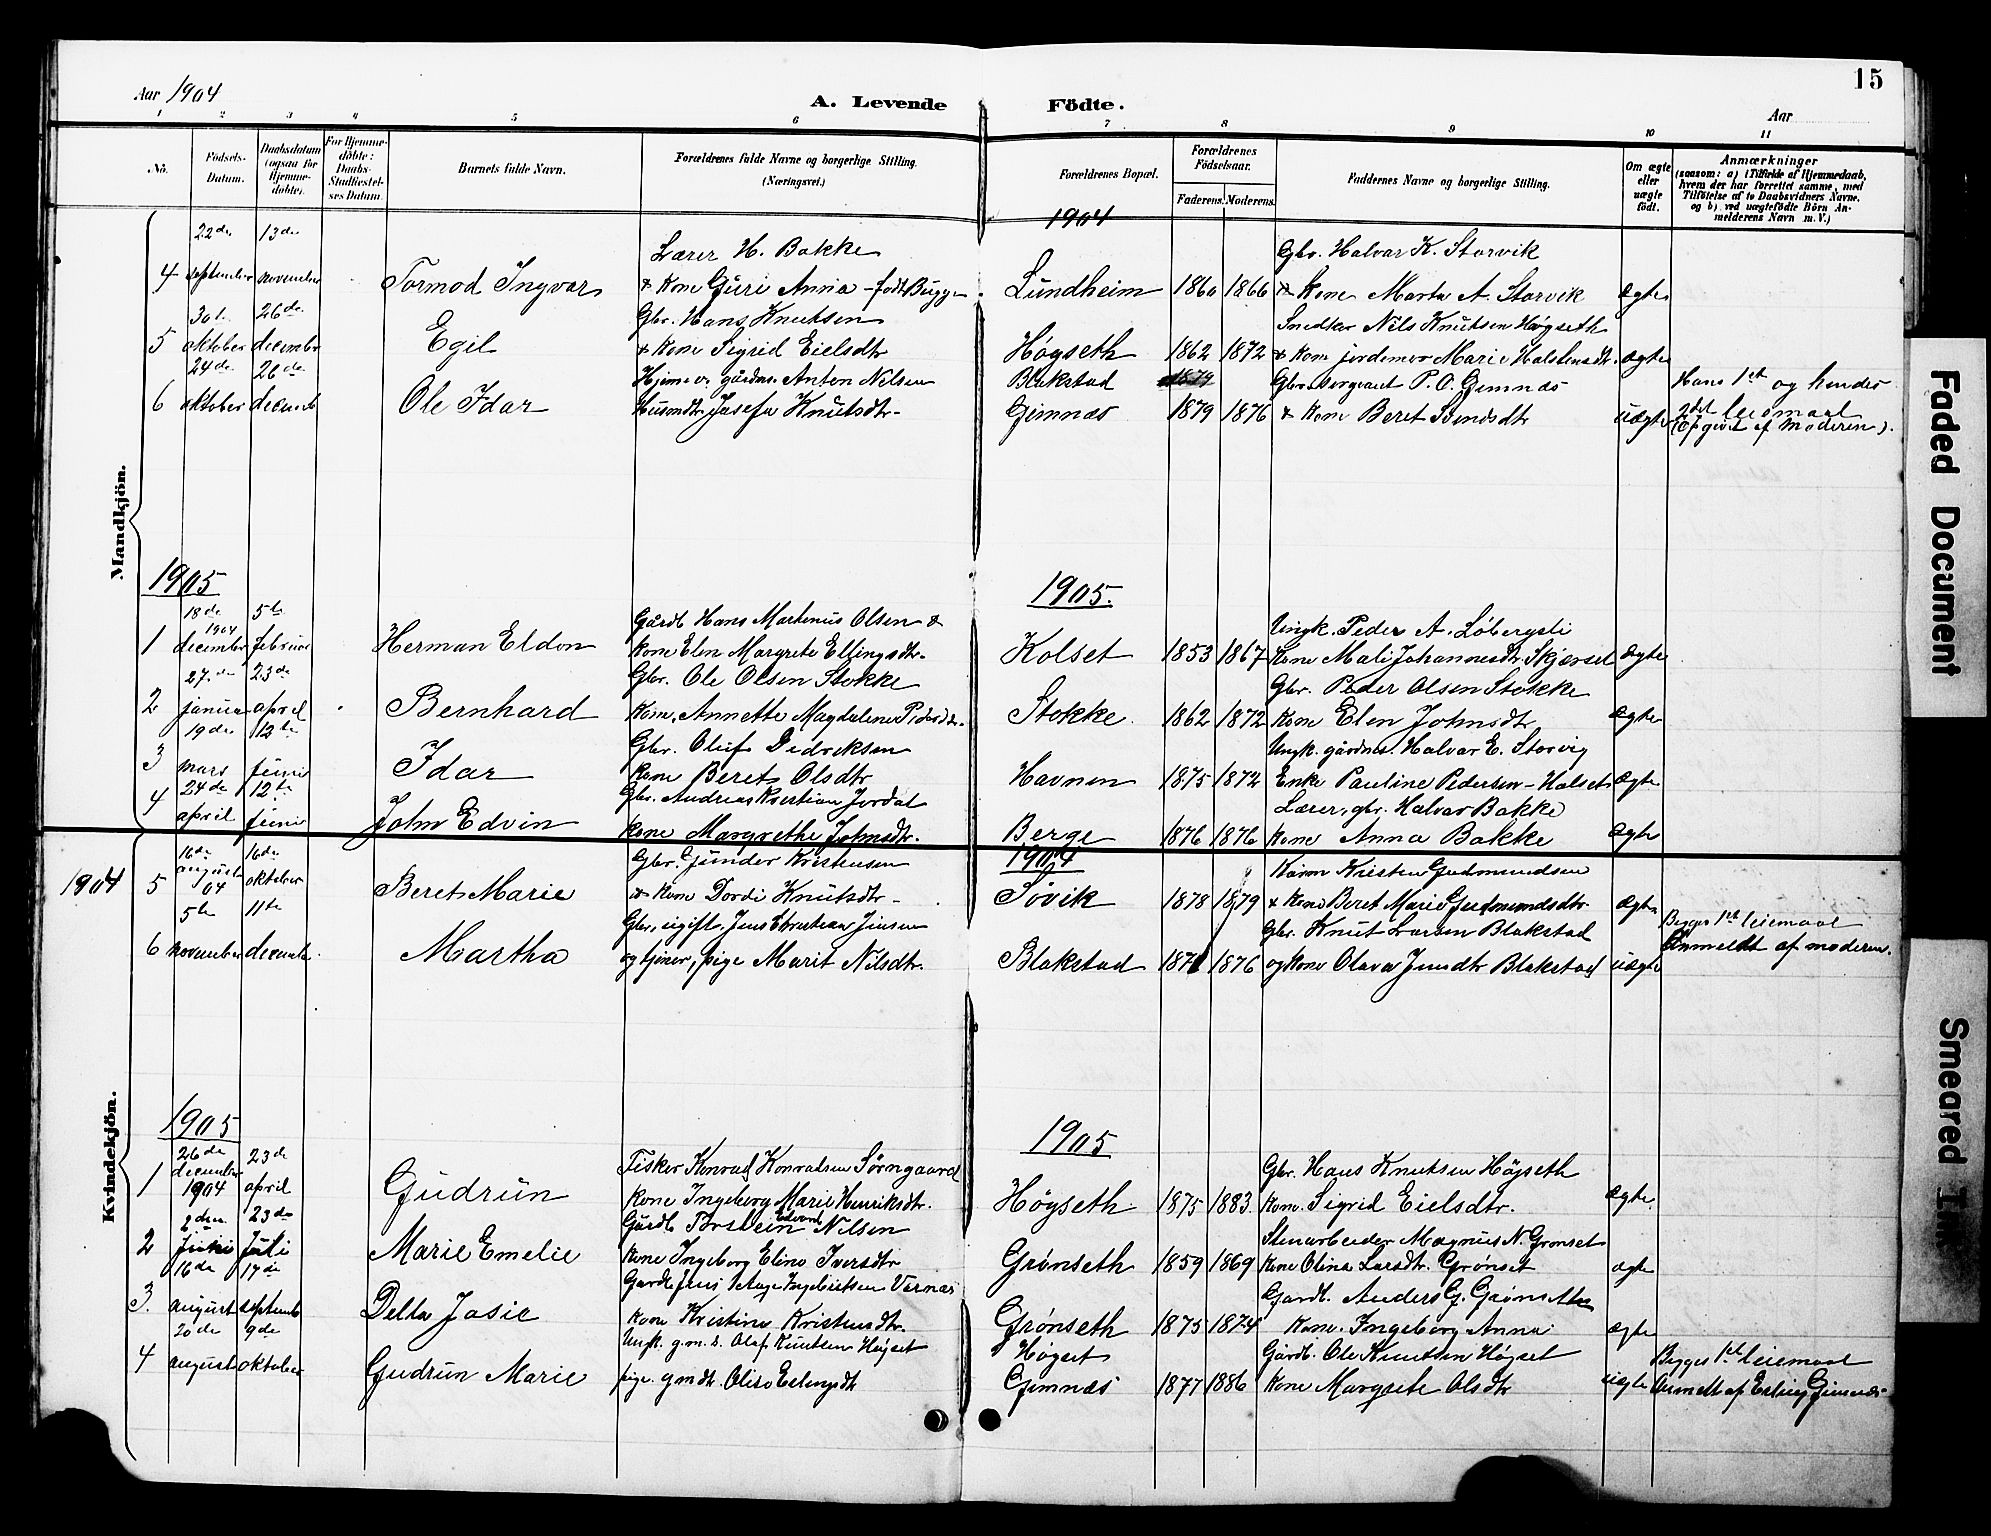 15
Aar 1904
A. Levende Födte.
Aar
1 2 3 4 5 6 7 8 9 10 11
No.
Födsels-Datum.
Daabsdatum (ogsaa for Hjemme-döbte).
For Hjemme-döbte: Daabs-Stadfæstel-ses Datum.
Barnets fulde Navn.
Forældrenes fulde Navne og borgerlige Stilling. (Næringsvei.)
Forældrenes Bopæl.
Forældrenes Födselsaar.
Faderens. Moderens.
Faddernes Navne og borgerlige Stilling.
Om ægte eller uægte födt.
Anmærkninger
(saasom: a) i Tilfælde af Hjemmedaab,
hvem der har forrettet samme, med
Tilföielse af to Daabsvidners Navne,
og b) ved uægtefödte Börn An-
melderens Navn m. V.)
Mandkjön.
1904
22de 13de Lærer H. Bakke Gbr. Halvar K. Storvik
4 september november Tormod Ingvar & Kone Guri Anna - født Bugge Lundheim 1860 1866 & Kone Marta A. Storvik ægte
30te 26de Gbr. Hans Knutsen Snedker Nils Knutsen Høgseth
5 oktober decembr Egil & Kone Sigrid Eielsdtr Høgseth 1862 1872 & Kone jordemor Marie Halstensdtr. ægte
24de 26de Hjemv. gårdm. Anton Nilsen Blakstad 1879 Gbr. sergeant P. O. Gimnæs Hans 1st og hendes
6 oktober decemb Ole Idar Husmdtr. Josefa Knutsdtr- Gimnæs 1879 1876 & Kone Beret Svendsdtr uægte 2det leiemaal
(Opgivet af Moderen).
1905 1905.
18de 5te Gårdb Hans Martinus Olsen & Ungk. Peder A. Løbergsli
1 1904 december februar Herman Eldon Kone Elen Margrete Ellingsdtr. Kolset 1853 1867 Kone Mali Johannesdtr Skjærset ægte
27de 23de Gbr. Ole Olsen Stokke Gbr. Peder Olsen Stokke
2 januar april Bernhard Kone Annette Magdalene Pedersdtr. Stokke. 1862 1872 Kone Elen Johnsdtr ægte
19de 12te Gbr. Oluf Didriksen Ungk. gårdm. Halvar E. Storvig
3 mars juni Idar Kone Berets Olsdtr Havnen 1875 1872 Enke Pauline Pedersen - Halset ægte
24de 12te Gbr. Andreas Kristian Jordal Lærer, gbr. Halvar Bakke
4 april juni John Edvin Kone Margrethe Johnsdtr. Berge 1876 1876 Kone Anna Bakke ægte
Kvindekjön.
1904 1904
16de 16de Gbr. Gunder Kristensen Kårm Kristen Gudmundsen
5 august 04 oktober Beret Marie & Kone Dordi Knutsdtr - Søvik 1878 1879 & Kone Beret Marie Gudmundsdtr. ægte
5te 11te Gbr, ugift. Jens Christian Jensen Gbr. Knut Larsen Blakstad Begges 1st leiemaal
6 november decembr Martha og tjener, pige Marit Nilsdtr. Blakstad 1871 1876 og Kone Olava Jensdtr Blakstad uægte Anmeldt af moderen.
1905 1905
26de 23de Fisker Konrad Konradsen Sørngaard Gbr. Hans Knutsen Høgseth
1 december 1904 april Gudrun Kone Ingeborg Marie Henriksdtr. Høgseth 1875 1883. Kone. Sigrid Eielsdtr. ægte
2den 23de Gårdb Torstein Edvard Nilsen Stenarbeider Magnus N. Grønset
2 Juni Juli Marie Emelie Kone Ingeborg Eline Iversdtr Grønseth 1859 1869 Kone Olina Larsdtr. Grønset ægte
16de 17de Gardb. Jens Aage Ingebritsen Vernæs Gardb. Anders G. Grønseth
3. august septemb Della Josie Kone Kristine Kristensdtr. Grønseth 1875 1874 Kone. Ingeborg Anna ægte
20de 9de Ungk. g.m.s. Olaf Knutsen Høgset Høgset Gårdb. Ole Knutsen Høgset Begges 1st leiemaal
4 august oktober Gudrun Marie pige gmdtr. Oliso Erlingsdtr Gimnæs 1877 1886 Kone Margrete Olsdtr uægte Anmeldt af Erling Gimnæs
Faded Document
Smeared Ink